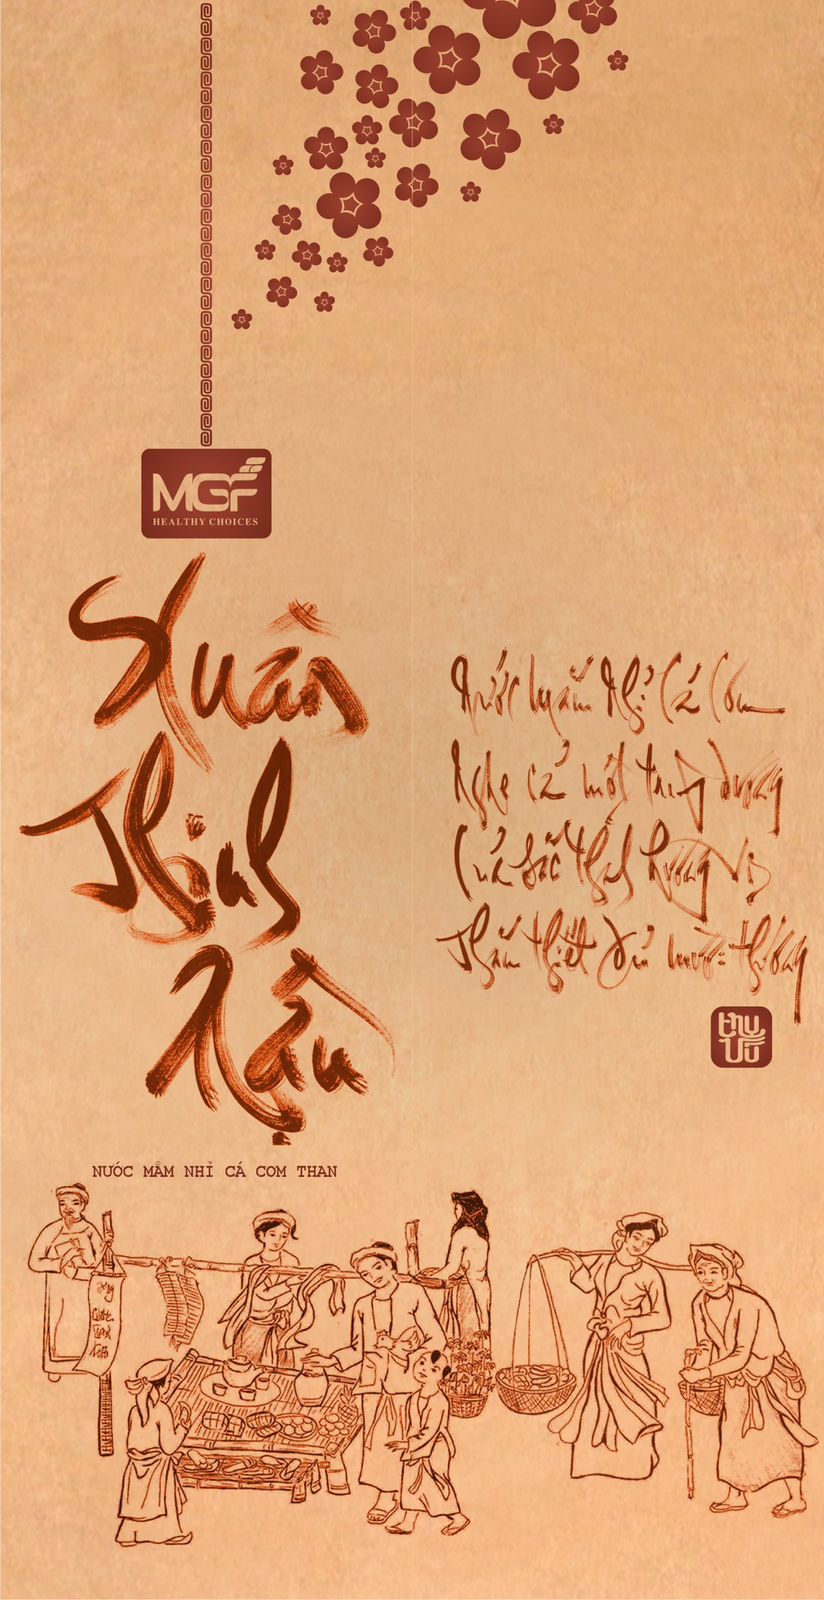 MGF
HEALTHY CHOICES
Xuân
Thịnh
Nậu
Nước Mắm Nhỉ Cá Cơm
Nghe cả một trùng dương
Của bắc hương vị
Thắm thiết đủ mười thương
thụ
Vũ
NƯỚC MẮM NHỈ CÁ COM THAN